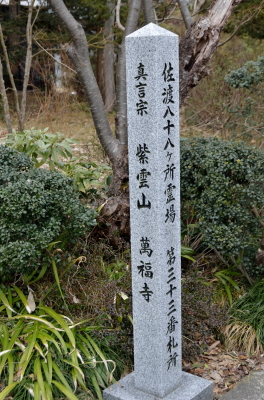 佐渡八十八ヶ所霊場 第三十三番札所
真言宗 紫雲山 萬福寺